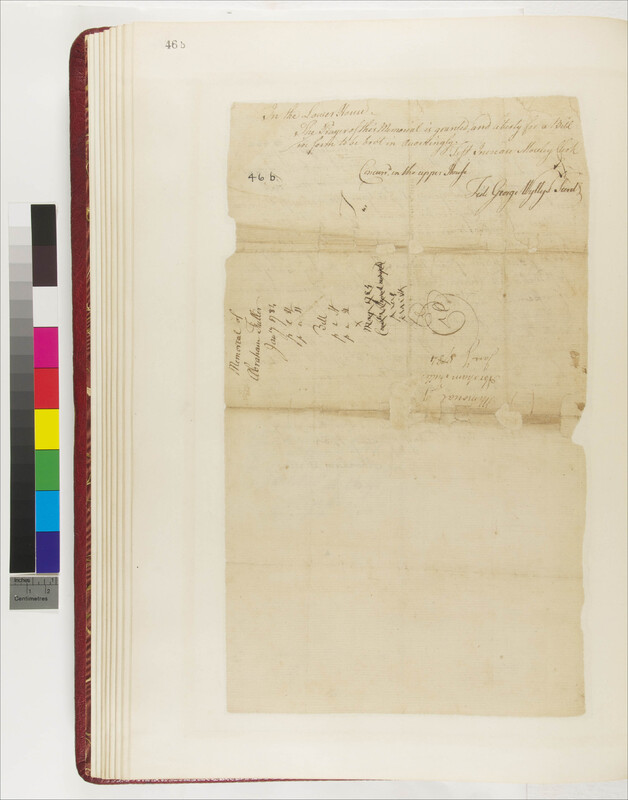 46 b
In the Lower House.
The Prayer of this Memorial is granted and liberty for a Bill
in form to be brot in accordingly.
Test Jnecase Moseley Clerk
46 b.
Concurrd. in the upper House
Test. George Wyllys Secret.y
Memorial of
Abraham Fuller
Jany 1784
p. L H
p. u. H
Bill
p. L. H
p. u. H
May 1784
Memorial of
Abraham
Jany 1784
Inches
1
Centimetres
1
2